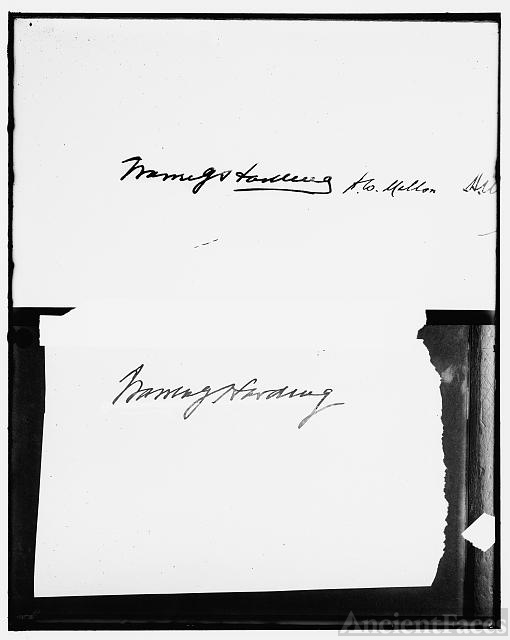 Warren G Harding A.W. Mellon
Warren G Harding
AncientFaces